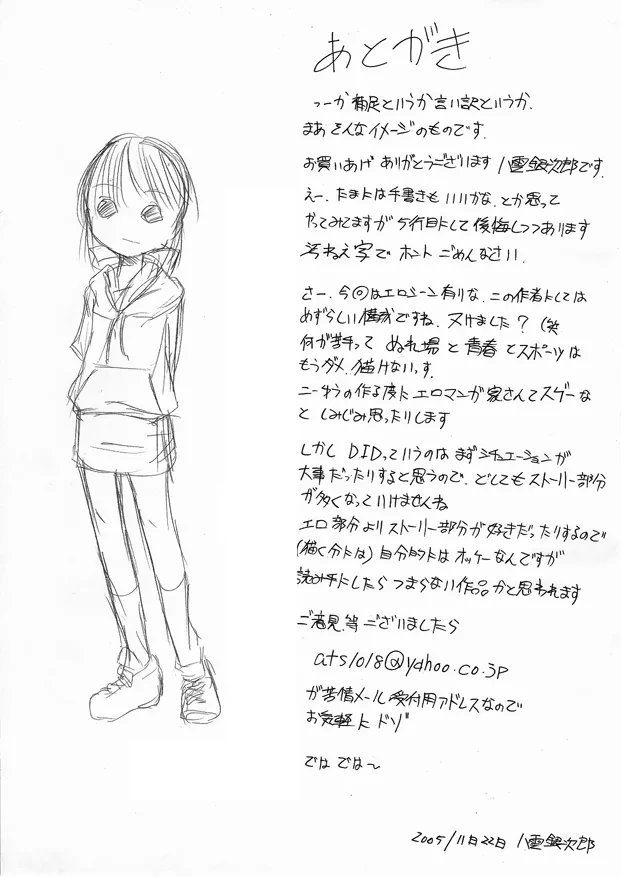 あとがき
つーか補足というか言い訳というか、
まあそんなイメージのものです。
お買いあげ ありがとうございます 八雲銀次郎です。
えー、たまには手書きもいいかな、とか思って
やってみてますが 5行目にして後悔しつつあります
汚ねえ字で ホント ごめんなさい。
さー、今回はエロシーン有りな、この作者にしては
めずらしい構成ですね、ヌけました？（笑
何が苦手って ぬれ場と青春とスポーツは
もうダメ、描けないっす。
こーゆうの作る度に エロマンガ家さんてスゲーな
と しみじみ思ったりします
しかし DIDっていうのは まずシチュエーションが
大事だったりすると思うので、どしてもストーリー部分
が多くなっていけませんね
エロ部分よりストーリー部分が好きだったりするので
（描く分には）自分的には オッケーなんですが
読み手にしたら つまらない作品かと思われます
ご意見、等 ございましたら
ats1018@yahoo.co.jp
が苦情メール受付用アドレスなので
お気軽に ドゾ
では では〜
2005/11月22日 八雲銀次郎